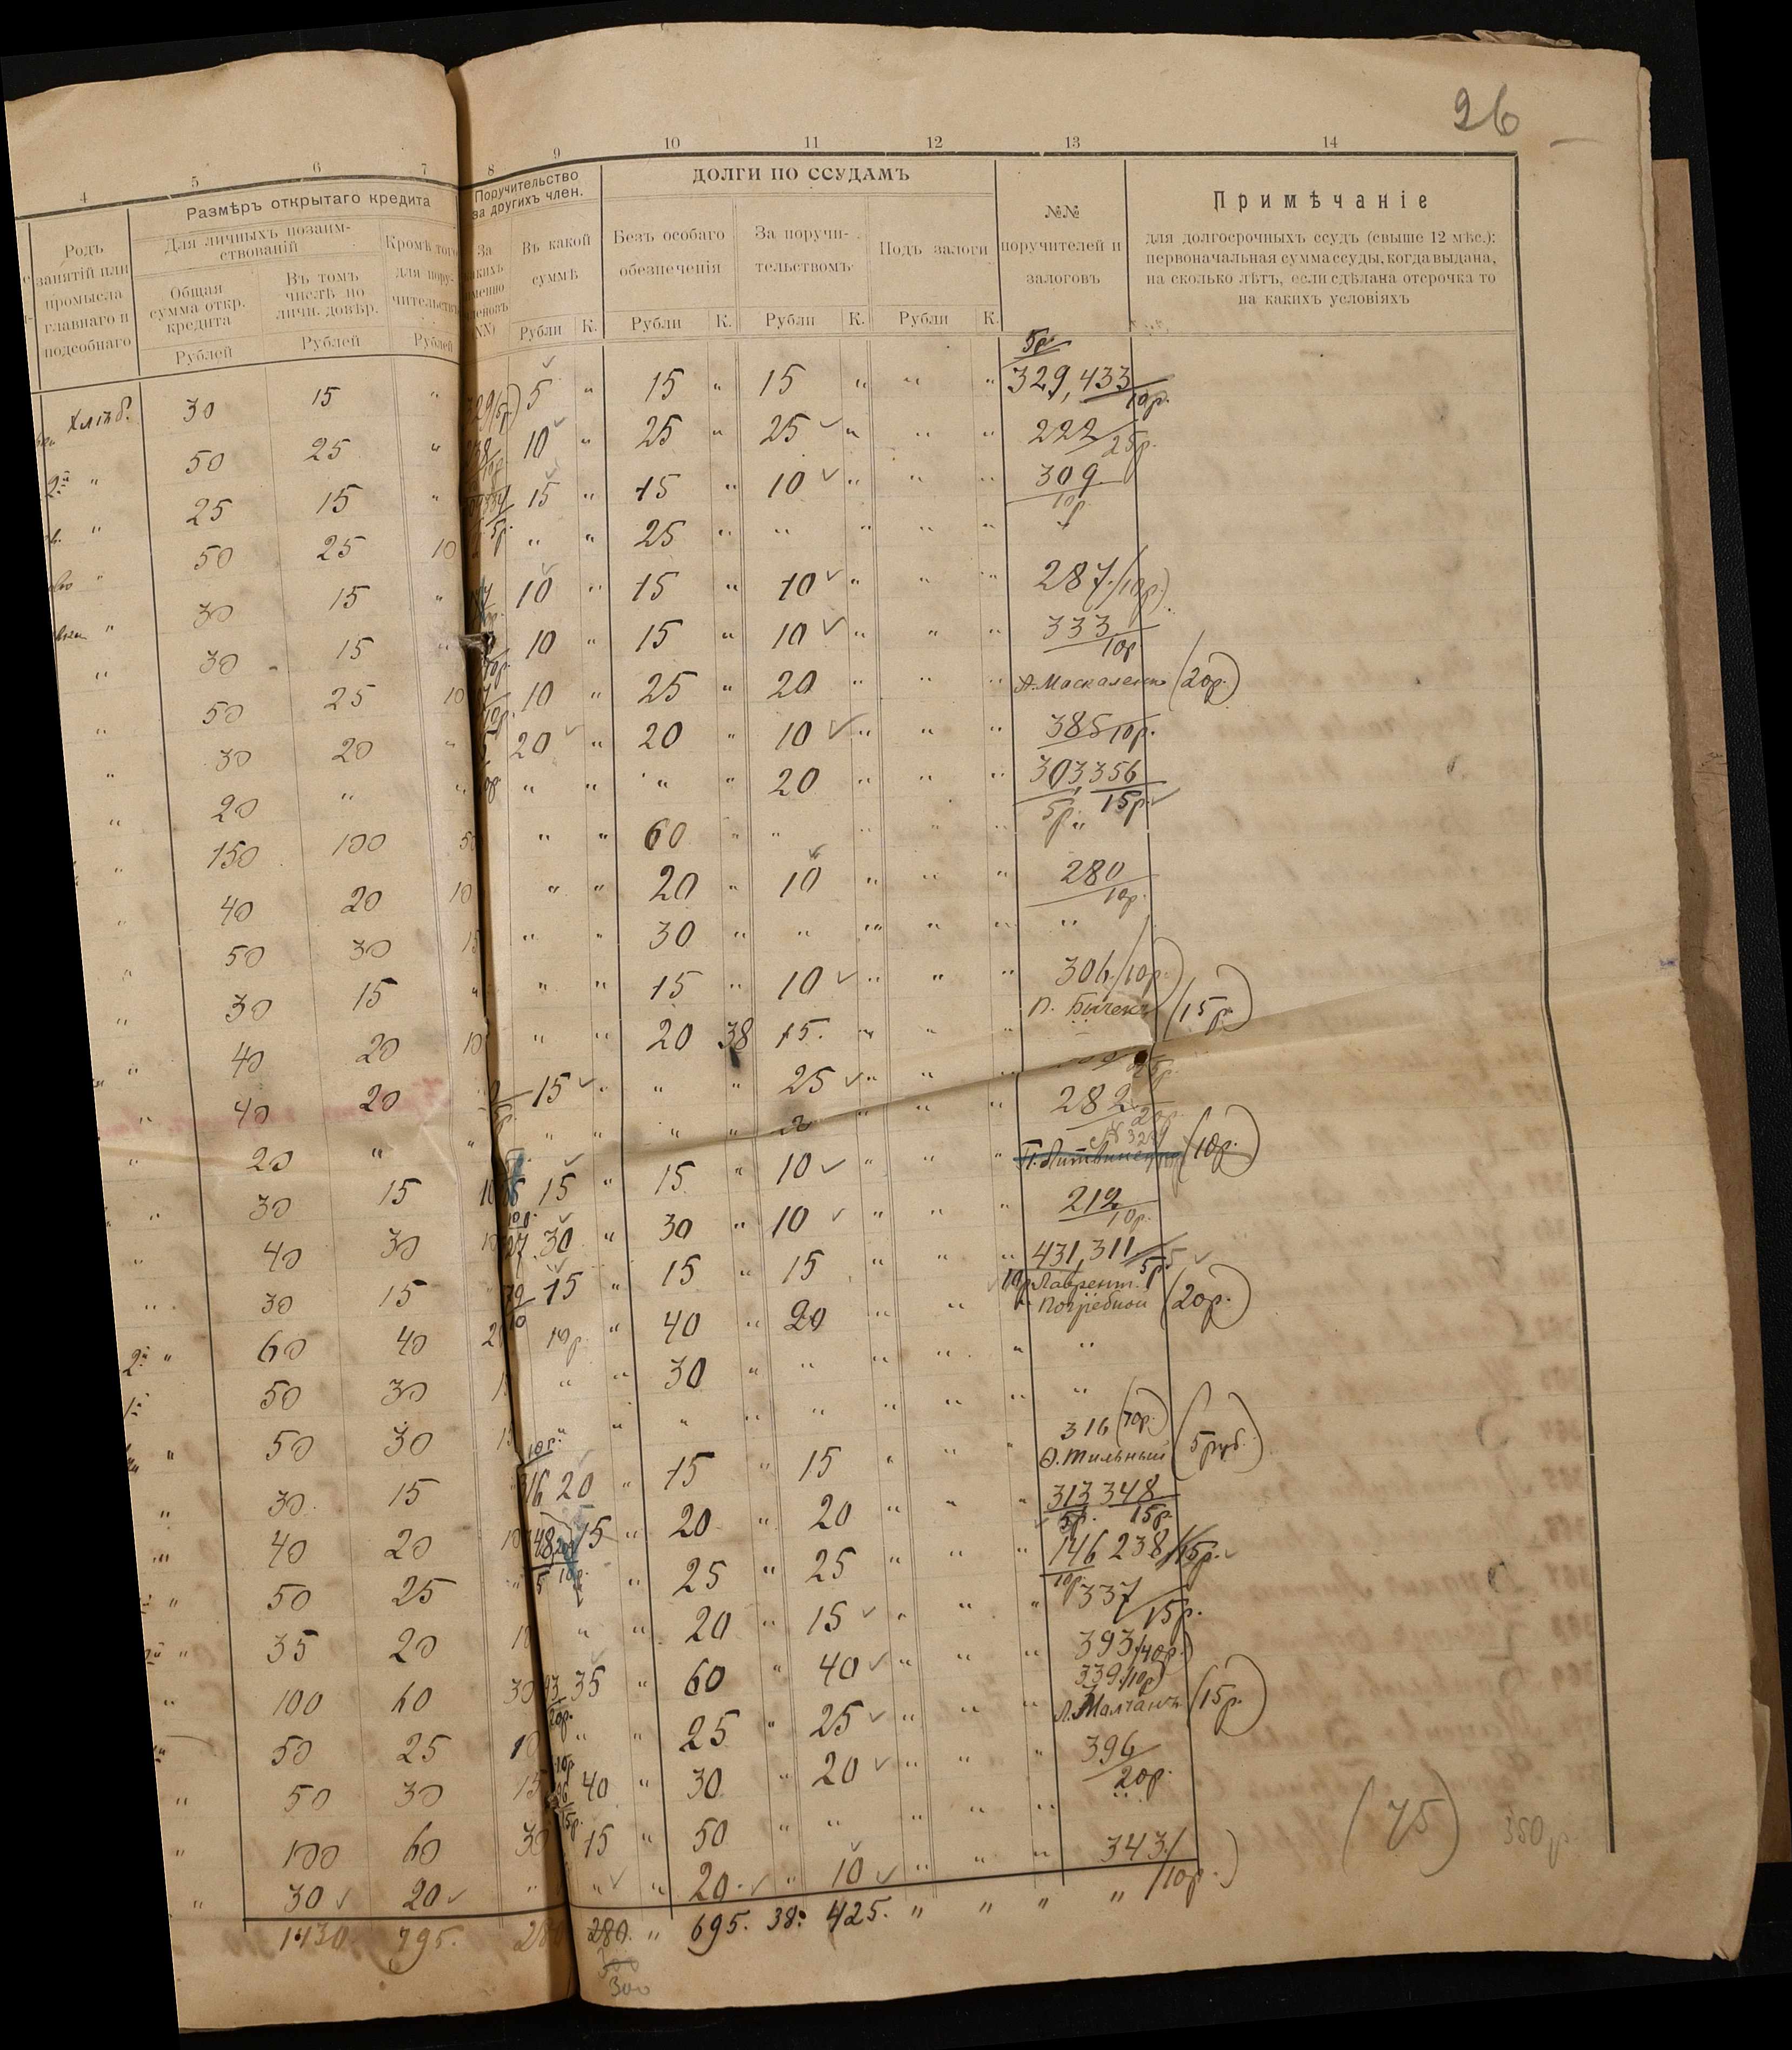 26
4 5 6 7 8 9 10 11 12 13 14
Размѣръ открытаго кредита
Поручительство за другихъ член.
ДОЛГИ ПО ССУДАМЪ
Родъ занятій или промысла главнаго и подсобнаго
Для личныхъ позаимствованій
Общая сумма откр. кредита
Рублей
Въ томъ числѣ по личн. довѣр.
Рублей
Кромѣ того для поручительства
Рублей
За какихъ именно членовъ
Въ какой суммѣ
Рубли К.
Безъ особаго обезпеченія
Рубли К.
За поручительствомъ
Рубли К.
Подъ залоги
Рубли К.
№№ поручителей и залоговъ
Примѣчаніе
для долгосрочныхъ ссудъ (свыше 12 мѣс.):
первоначальная сумма ссуды, когда выдана,
на сколько лѣтъ, если сдѣлана отсрочка то
на какихъ условіяхъ
Хлѣб. 30 15 " 5 " 15 " 15 " " " 5р. 329, 433 10р.
" 50 25 " 10 " 25 " 25 " " " 222 25р.
" 25 15 " 15 " 15 " 10 " " " 309 10р.
" 50 25 10 " " 25 " " " " "
" 30 15 " 10 " 15 " 10 " " " 287 (10р)
" 30 15 " 10 " 15 " 10 " " " 333 10р
" 50 25 10 10 " 25 " 20 " " " А. Москаленко (20р.)
" 30 20 " 20 " 20 " 10 " " " 385 10р.
" 20 " " " " " " 20 " " " 303, 356 5р. 15р.
" 150 100 50 " " 60 " " " " " "
" 40 20 10 " " 20 " 10 " " " 280 10р.
" 50 30 15 " " 30 " " " " " "
" 30 15 " " " 15 " 10 " " " 306 (10р.)
" 40 20 10 " " 20 38 15. " " " (15р.)
" 40 20 " 15 " " " 25 " " " 25р.
" 20 " " " " " " " " " 282 20р.
" 30 15 10 15 " 15 " 10 " " " (10р.)
" 40 30 10 30 " 30 " 10 " " " 212 10р.
" 30 15 " 15 " 15 " 15 " " " 431, 311 5р
2й " 60 40 10р. " 40 " 20 " " " 10р Лаврент. Погребной (20р.)
50 30 " " 30 " " " " " "
" 50 30 " " " " " " " " "
" 30 15 316 20 " 15 " 15 " " " 316 (10р.) Тильный (5 руб.)
" 40 20 10 15 " 20 " 20 " " " 313 348 5р. 15р.
" 50 25 " " 25 " 25 " " " 146 238 15р. 10р
" 35 20 " " 20 " 15 " " " 337 15р.
" 100 60 30 35 " 60 " 40 " " " 393 (40р.)
50 25 10 " " 25 " 25 " " " 339 (10р) (15р.)
" 50 30 15 40 " 30 " 20 " " " 396 20р.
" 100 60 30 15 " 50 " " " " " "
" 30 20 " " " 20 " 10 " " " 343 (10р.)
1430 795. 280 280. " 695. 38. 425. " " " "
300
(75) 350 р.